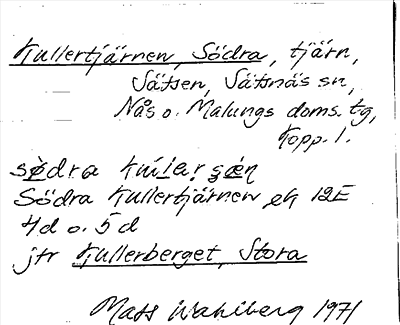 Kullertjärnen, Södra, tjärn,
Sätsen, Sätsnäs sn,
Nås o. Malungs doms. tg,
Kopp. l.
södra
Södra Kullertjärnen, ek 12E
4d o. 5d
jfr Kullerberget, Stora
Mats Wahlberg 1971